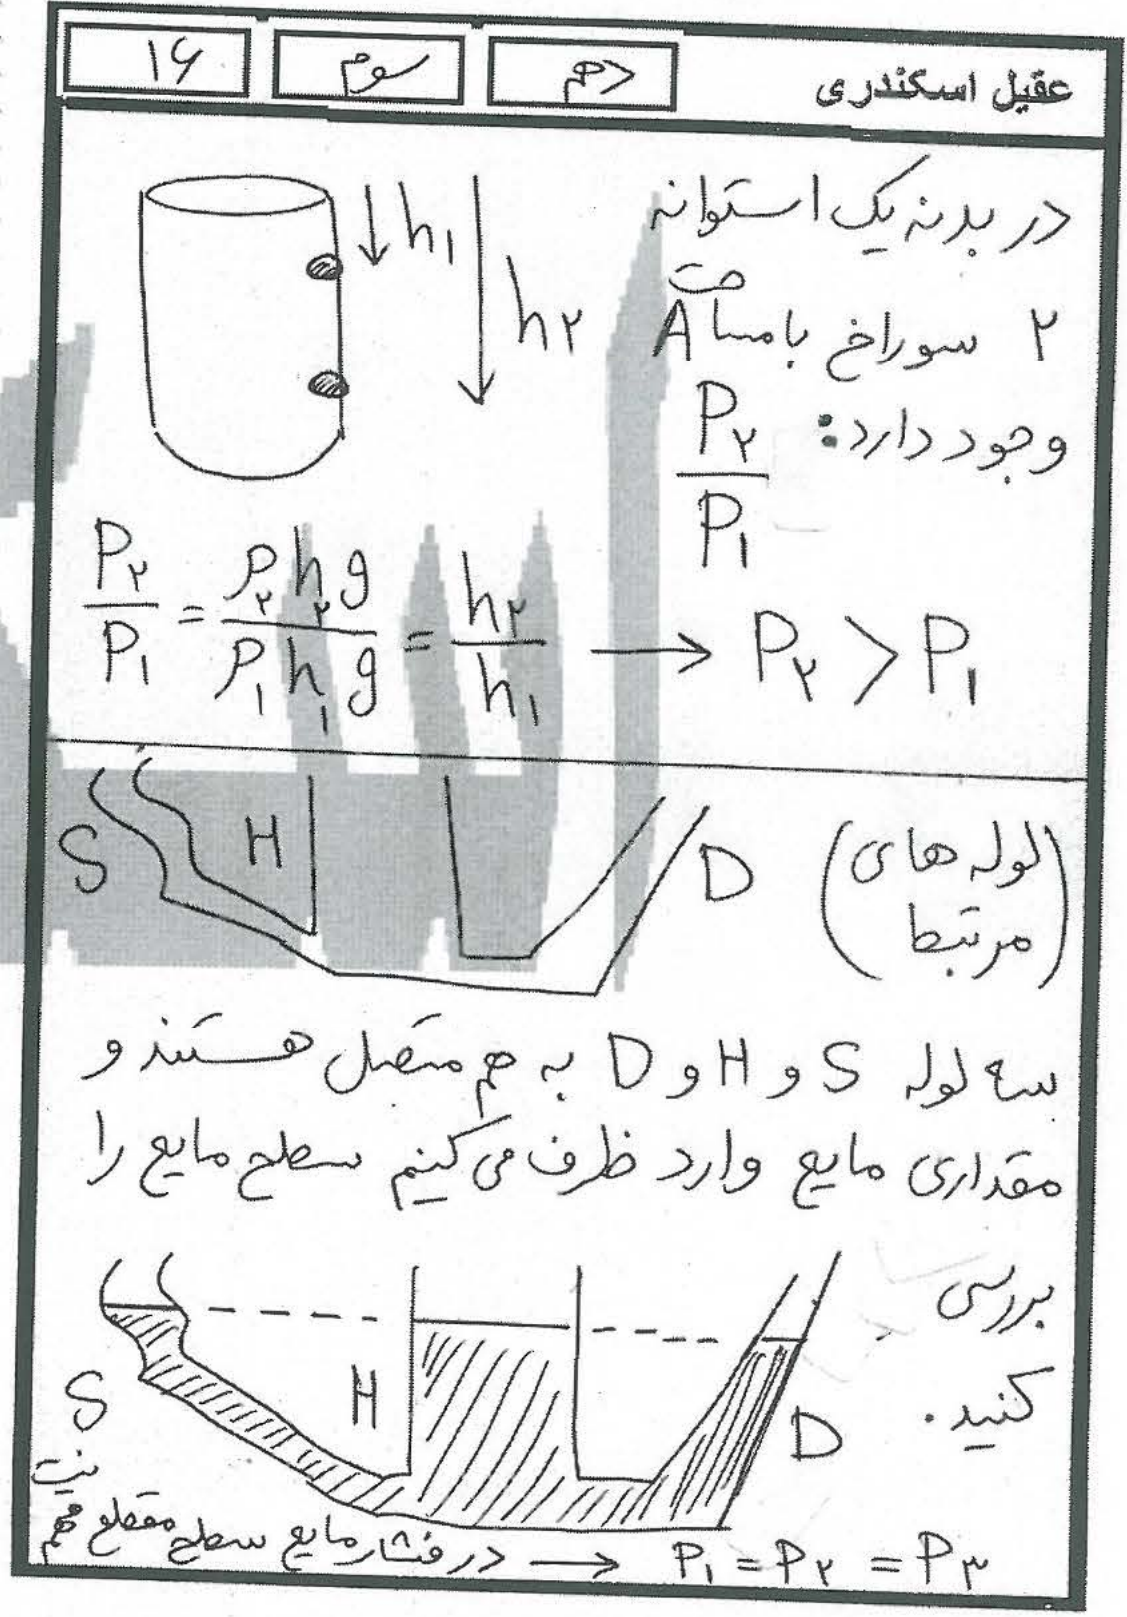 عقیل اسکندری
دهم
سوم
۱۶
در بدنه یک استوانه
۲ سوراخ با مساحت A
وجود دارد: P۲/P۱
h۱
h۲
P۲/P۱ = ρ۲h۲g/ρ۱h۱g = h۲/h۱ → P۲ > P۱
(لوله های
مرتبط)
S
H
D
سه لوله S و H و D به هم متصل هستند و
مقداری مایع وارد ظرف می کنیم سطح مایع را
بررسی
کنید.
S
H
D
P۱ = P۲ = P۳ → در فشار مایع سطح مقطع مهم نیست